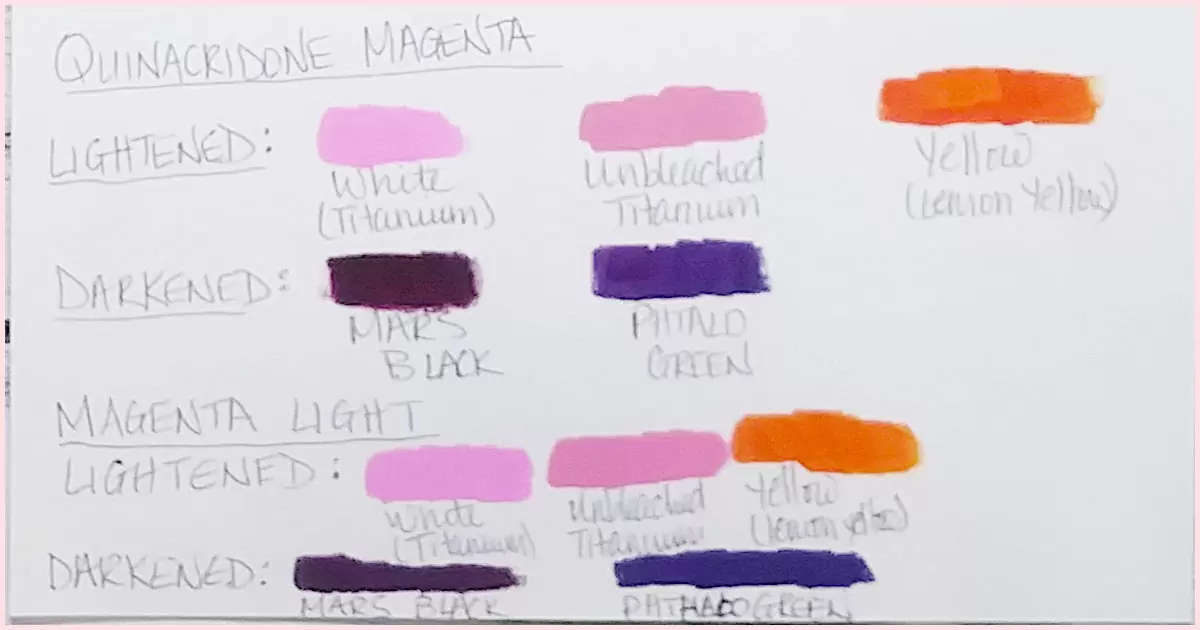 QUINACRIDONE MAGENTA
LIGHTENED:
White
(Titanium)
Unbleached
Titanium
Yellow
(Lemon Yellow)
DARKENED:
MARS
BLACK
PHTALO
GREEN
MAGENTA LIGHT
LIGHTENED:
White
(Titanium)
Unbleached
Titanium
Yellow
(lemon yellow)
DARKENED:
MARS BLACK
GREEN